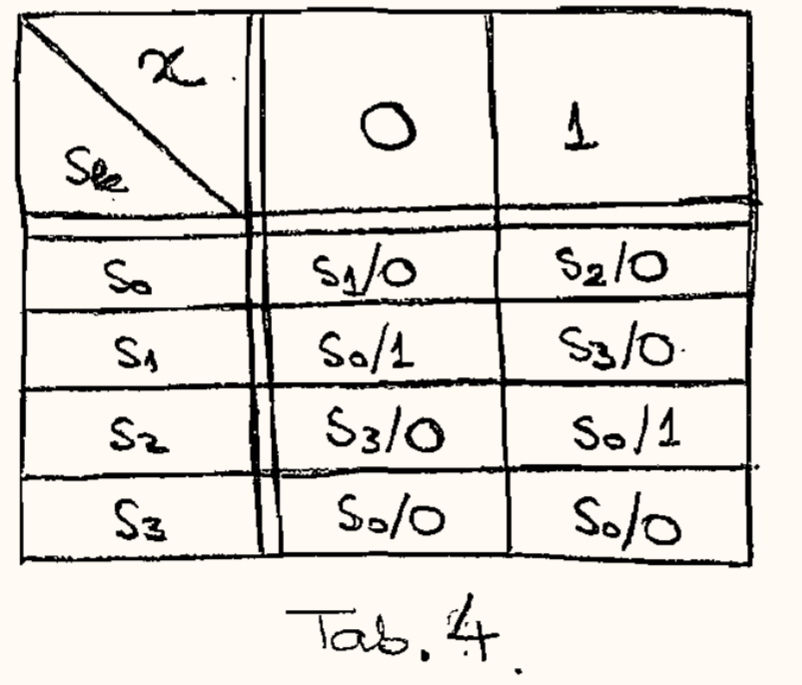 x
Sk 0 1
S0 S1/0 S2/0
S1 S0/1 S3/0
S2 S3/0 S0/1
S3 S0/0 S0/0
Tab. 4.